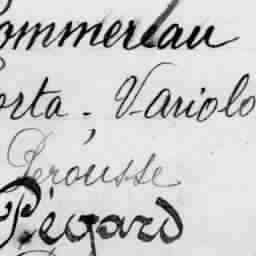 ommereau
orta - Variolo
Dérousse
Pégard